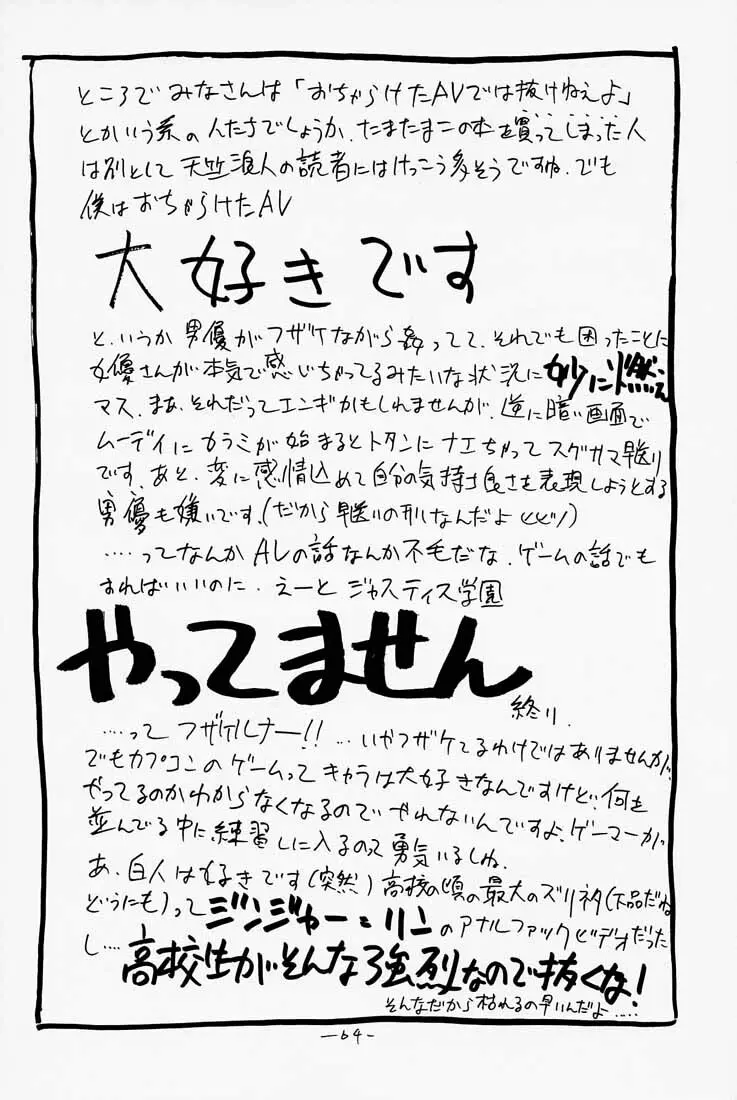 ところでみなさんは「おちゃらけたAVでは抜けねえよ」
とかいう系の人たちでしょうか、たまたまこの本を買ってしまった人
は別として天竺浪人の読者にはけっこう多そうですね.でも
僕はおちゃらけたAV
大好きです
と、いうか男優がフザケながら姦ってて、それでも困ったことに
女優さんが本気で感じちゃってるみたいな状況に妙に燃え
マス、まあ、それだってエンギかもしれませんが、逆に暗い画面で
ムーディにカラミが始まるとトタンにナエちゃってスグサマ早送り
です、あと、変に感情込めて自分の気持ち良さを表現しようとする
男優も嫌いです、(だから早送りの刑なんだよ
‥‥ってなんかAVの話なんか不毛だな、ゲームの話でも
すればいいのに.えーと ジャスティス学園
やってません
終り.
‥‥ってフザケルナー!!‥いやフザケてるわけではありませんが、
でもカプコンのゲームってキャラは大好きなんですけど、何を
やってるのかわからなくなるのでやれないんですよ、ゲーマーが
並んでる中に練習しに入るのって勇気いるしね、
あ、白人は好きです(突然)高校の頃の最大のズリネタ(下品だね
どうにも)ってジンジャー=リンのアナルファックビデオだった
し‥‥
高校生がそんな強烈なので抜くな!
そんなだから枯れるの早いんだよ‥‥
-64-